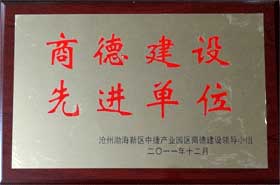 商德建设
先进单位
沧州渤海新区中捷产业园区商德建设领导小组
二〇一一年十二月